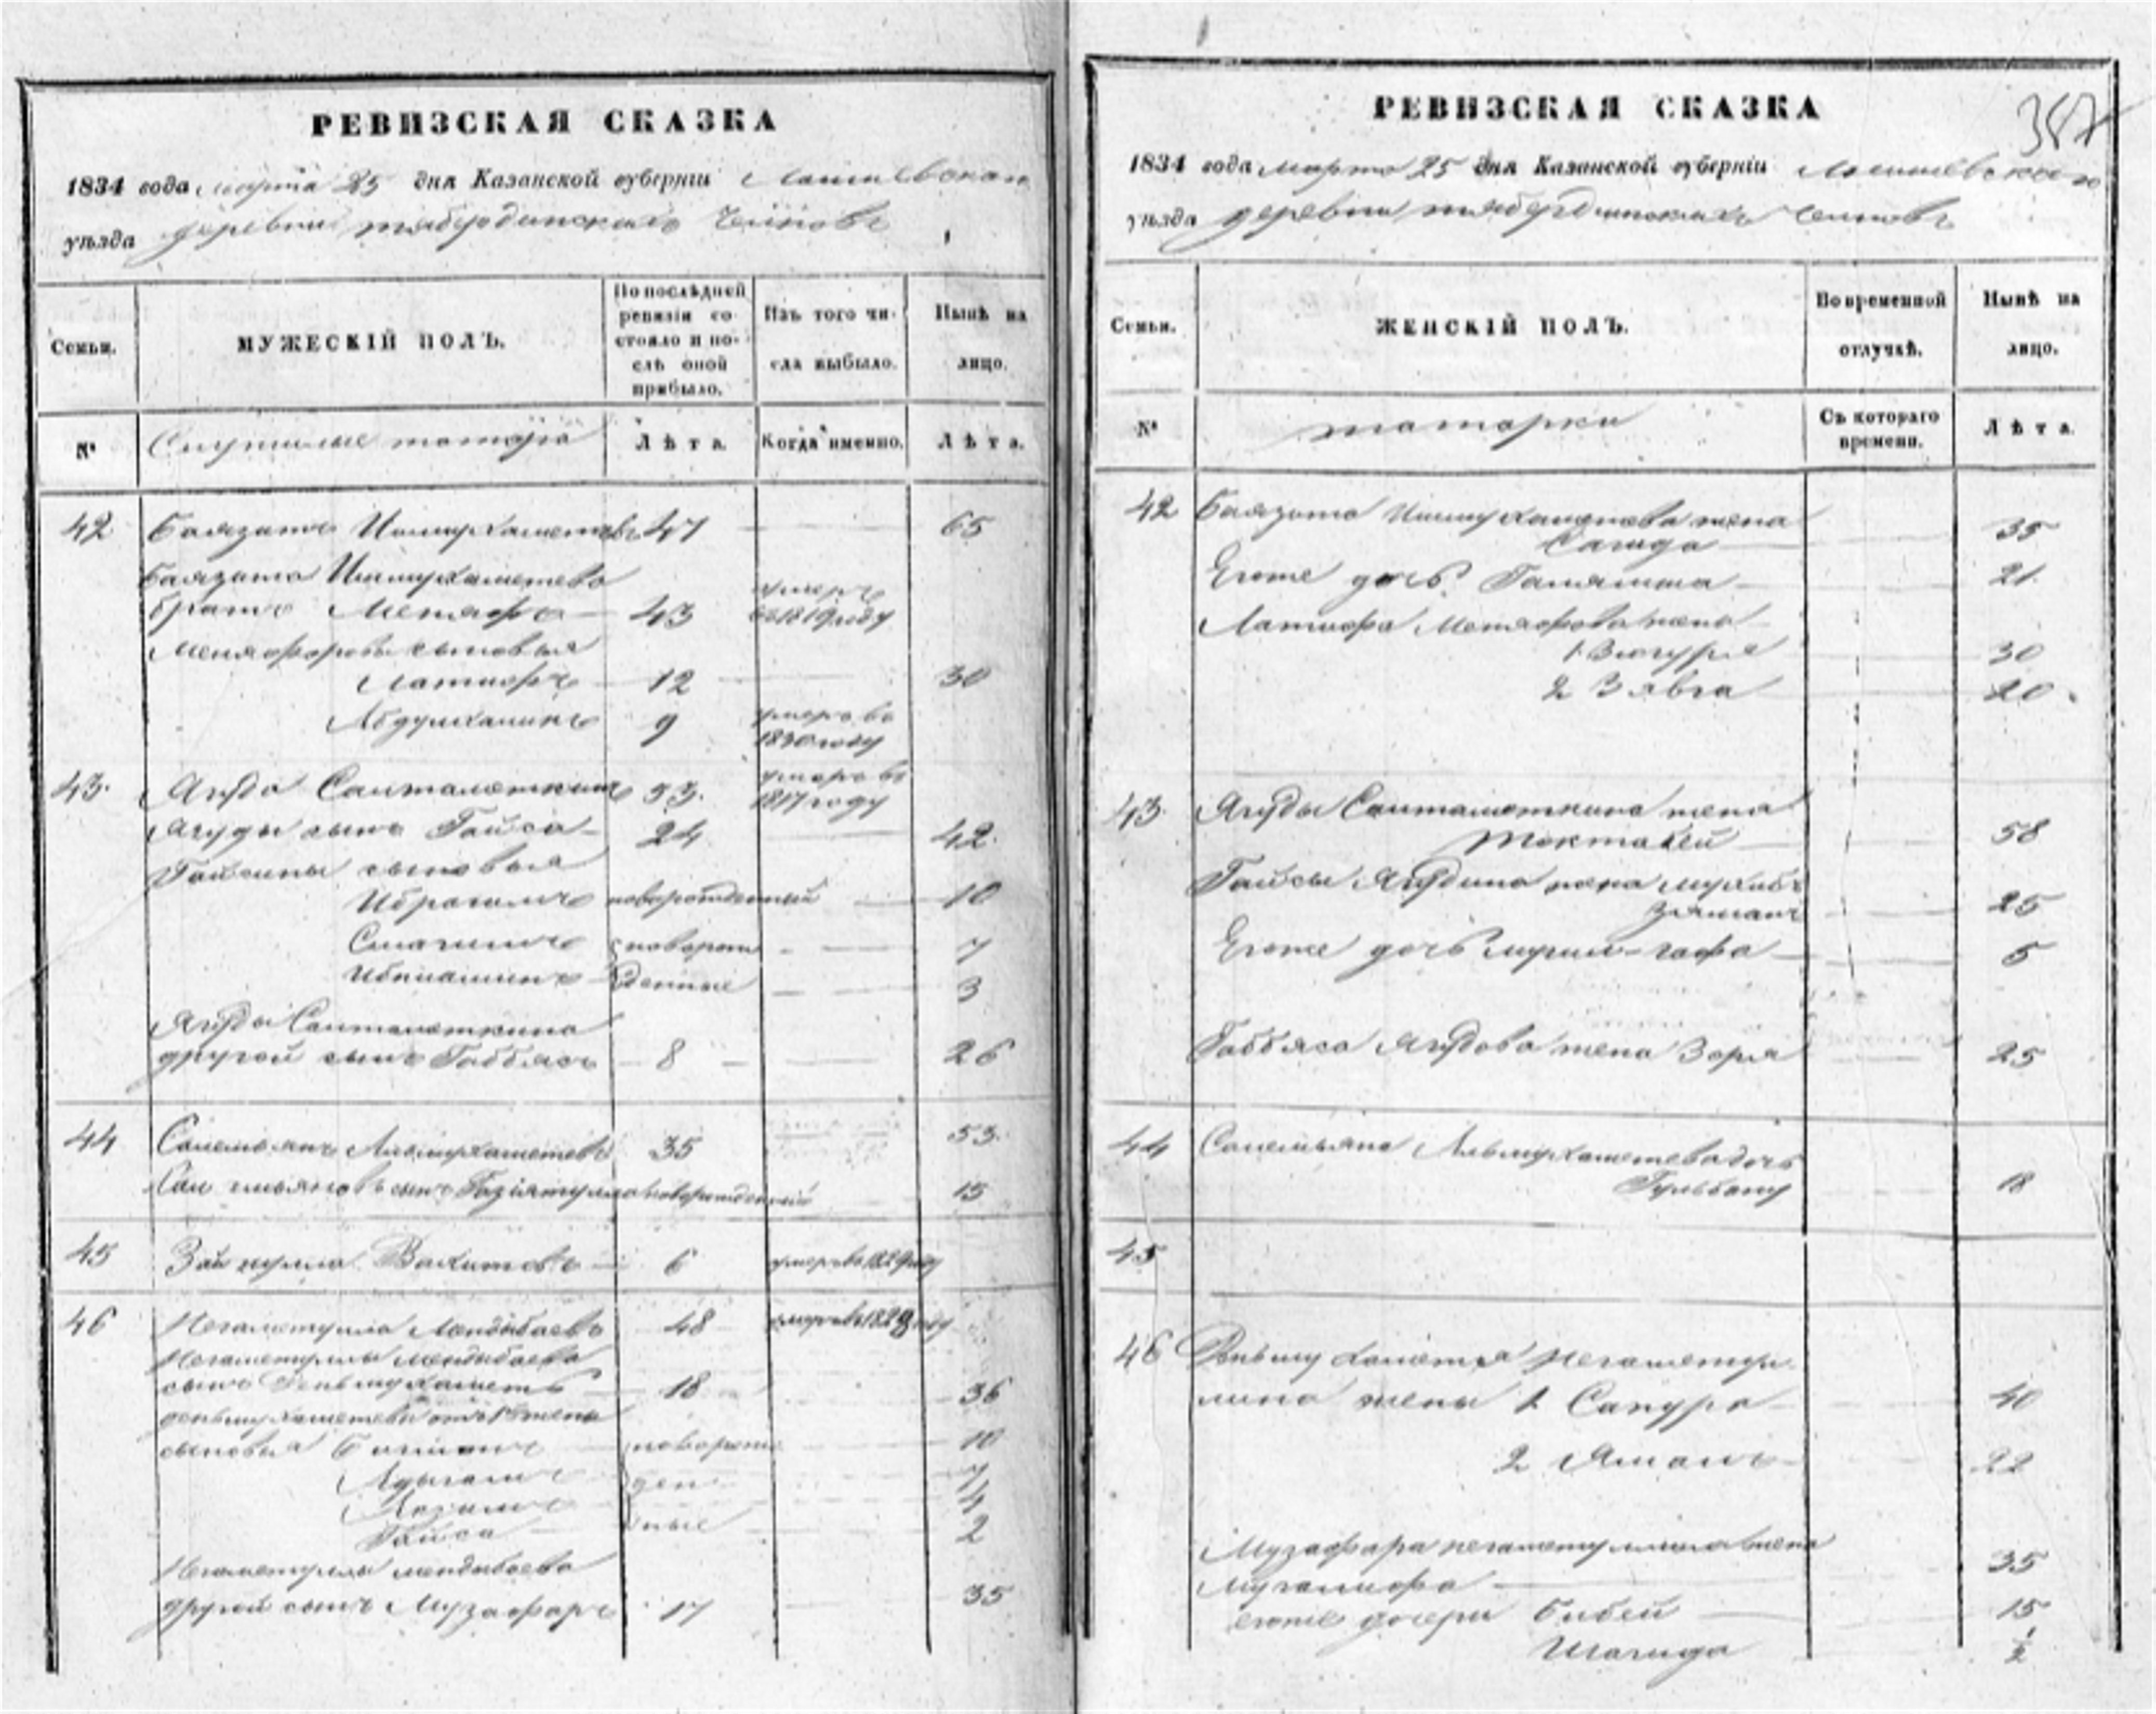 РЕВИЗСКАЯ СКАЗКА
1834 года марта 25 дня Казанской губерніи Лаишевскаго
уѣзда деревни тябердинскихъ Челновъ
Семьи.
МУЖЕСКІЙ ПОЛЪ.
По послѣдней ревизіи состояло и послѣ оной прибыло.
Изъ того числа выбыло.
Нынѣ на лицо.
№
татара
Лѣта.
Когда именно.
Лѣта.
42 Баязитъ Ишмухаметевъ 47 65
Баязита Ишмухаметева
братъ Метяфъ 43 умеръ въ 1819 году
сыновья
Латифъ 12 30
Абдулханинъ 9 умеръ въ 1830 году
43. Ягуда Саитаметкинъ 53. умеръ въ 1817 году
Ягуды сынъ Гайса 24 42.
Гайсины сыновья
Ибрагимъ новорожденный 10
Смагилъ новорож 7
Ибниаминъ денные 3
Ягуды Саитаметкина
другой сынъ Габбясъ 8 26
44 Салемьянъ Альмухаметевъ 35 53.
сынъ новорожденный 15
45 Зайнулла Вахитовъ 6 умеръ въ 1829 году
46 Негаметулла Мендибаевъ 48 умеръ въ 1829 году
Негаметуллы мендибаева
сынъ 18 36
жены
сыновья новорож 10
ден 7
4
Гайса ные 2
Негаметуллы мендибаева
другой сынъ Музафаръ 17 35
РЕВИЗСКАЯ СКАЗКА
387
1834 года марта 25 дня Казанской губерніи Лаишевскаго
уѣзда деревни тябердинскихъ Челновъ
Семьи.
ЖЕНСКІЙ ПОЛЪ.
Во временной отлучкѣ.
Нынѣ на лицо.
№
татарки
Съ котораго времени.
Лѣта.
42 Баязита Ишмухаметева жена
Сагида 35
Егоже дочь Галямша 21.
Латифа Метяфова жена
1 30
2 Зявга 20.
43. Ягуды Саитаметкина жена
Токтабей 58
Гайсы Ягудина жена
25
Егоже дочь 5
Габбяса Ягудова жена Зоря 25
44 Салемьяна Альмухаметева дочь
Гульбану 18
45
46 Негаметул
лина жены 1 Сапура 40
2 Яманъ 22
Музафара негаметуллина жена
35
егоже дочери Бибей 15
Шагида 1/2